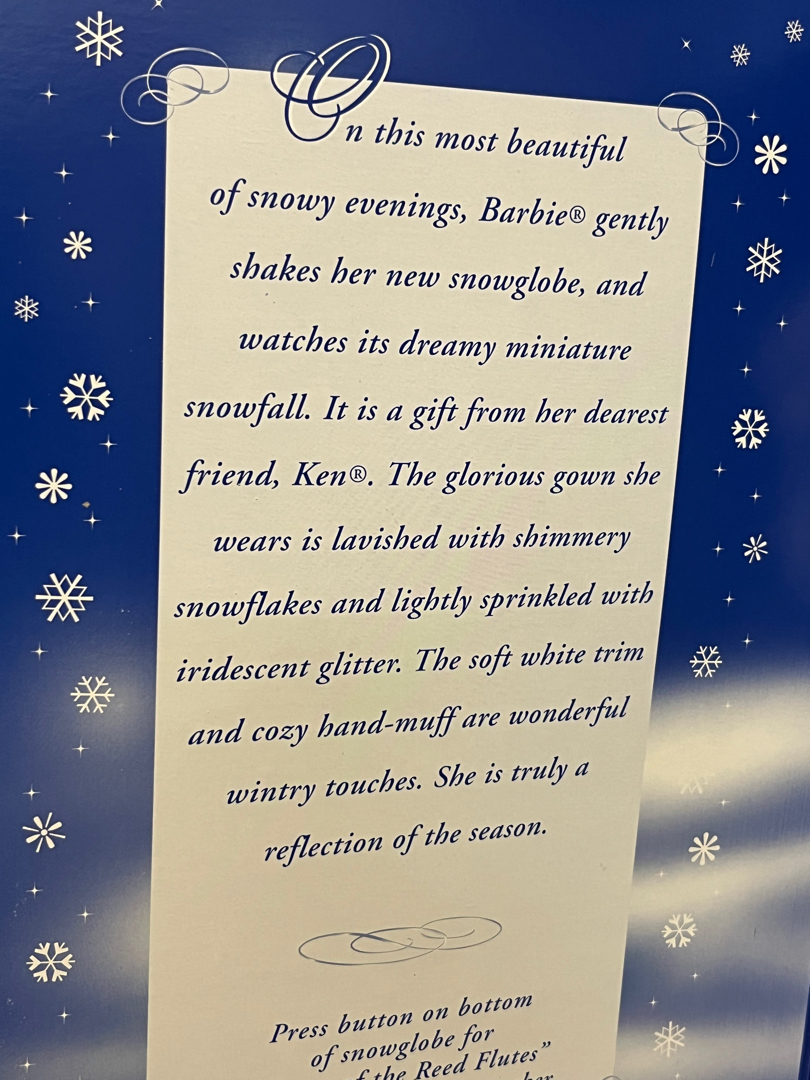 On this most beautiful
of snowy evenings, Barbie® gently
shakes her new snowglobe, and
watches its dreamy miniature
snowfall. It is a gift from her dearest
friend, Ken®. The glorious gown she
wears is lavished with shimmery
snowflakes and lightly sprinkled with
iridescent glitter. The soft white trim
and cozy hand-muff are wonderful
wintry touches. She is truly a
reflection of the season.
Press button on bottom
of snowglobe for
the Reed Flutes”
her